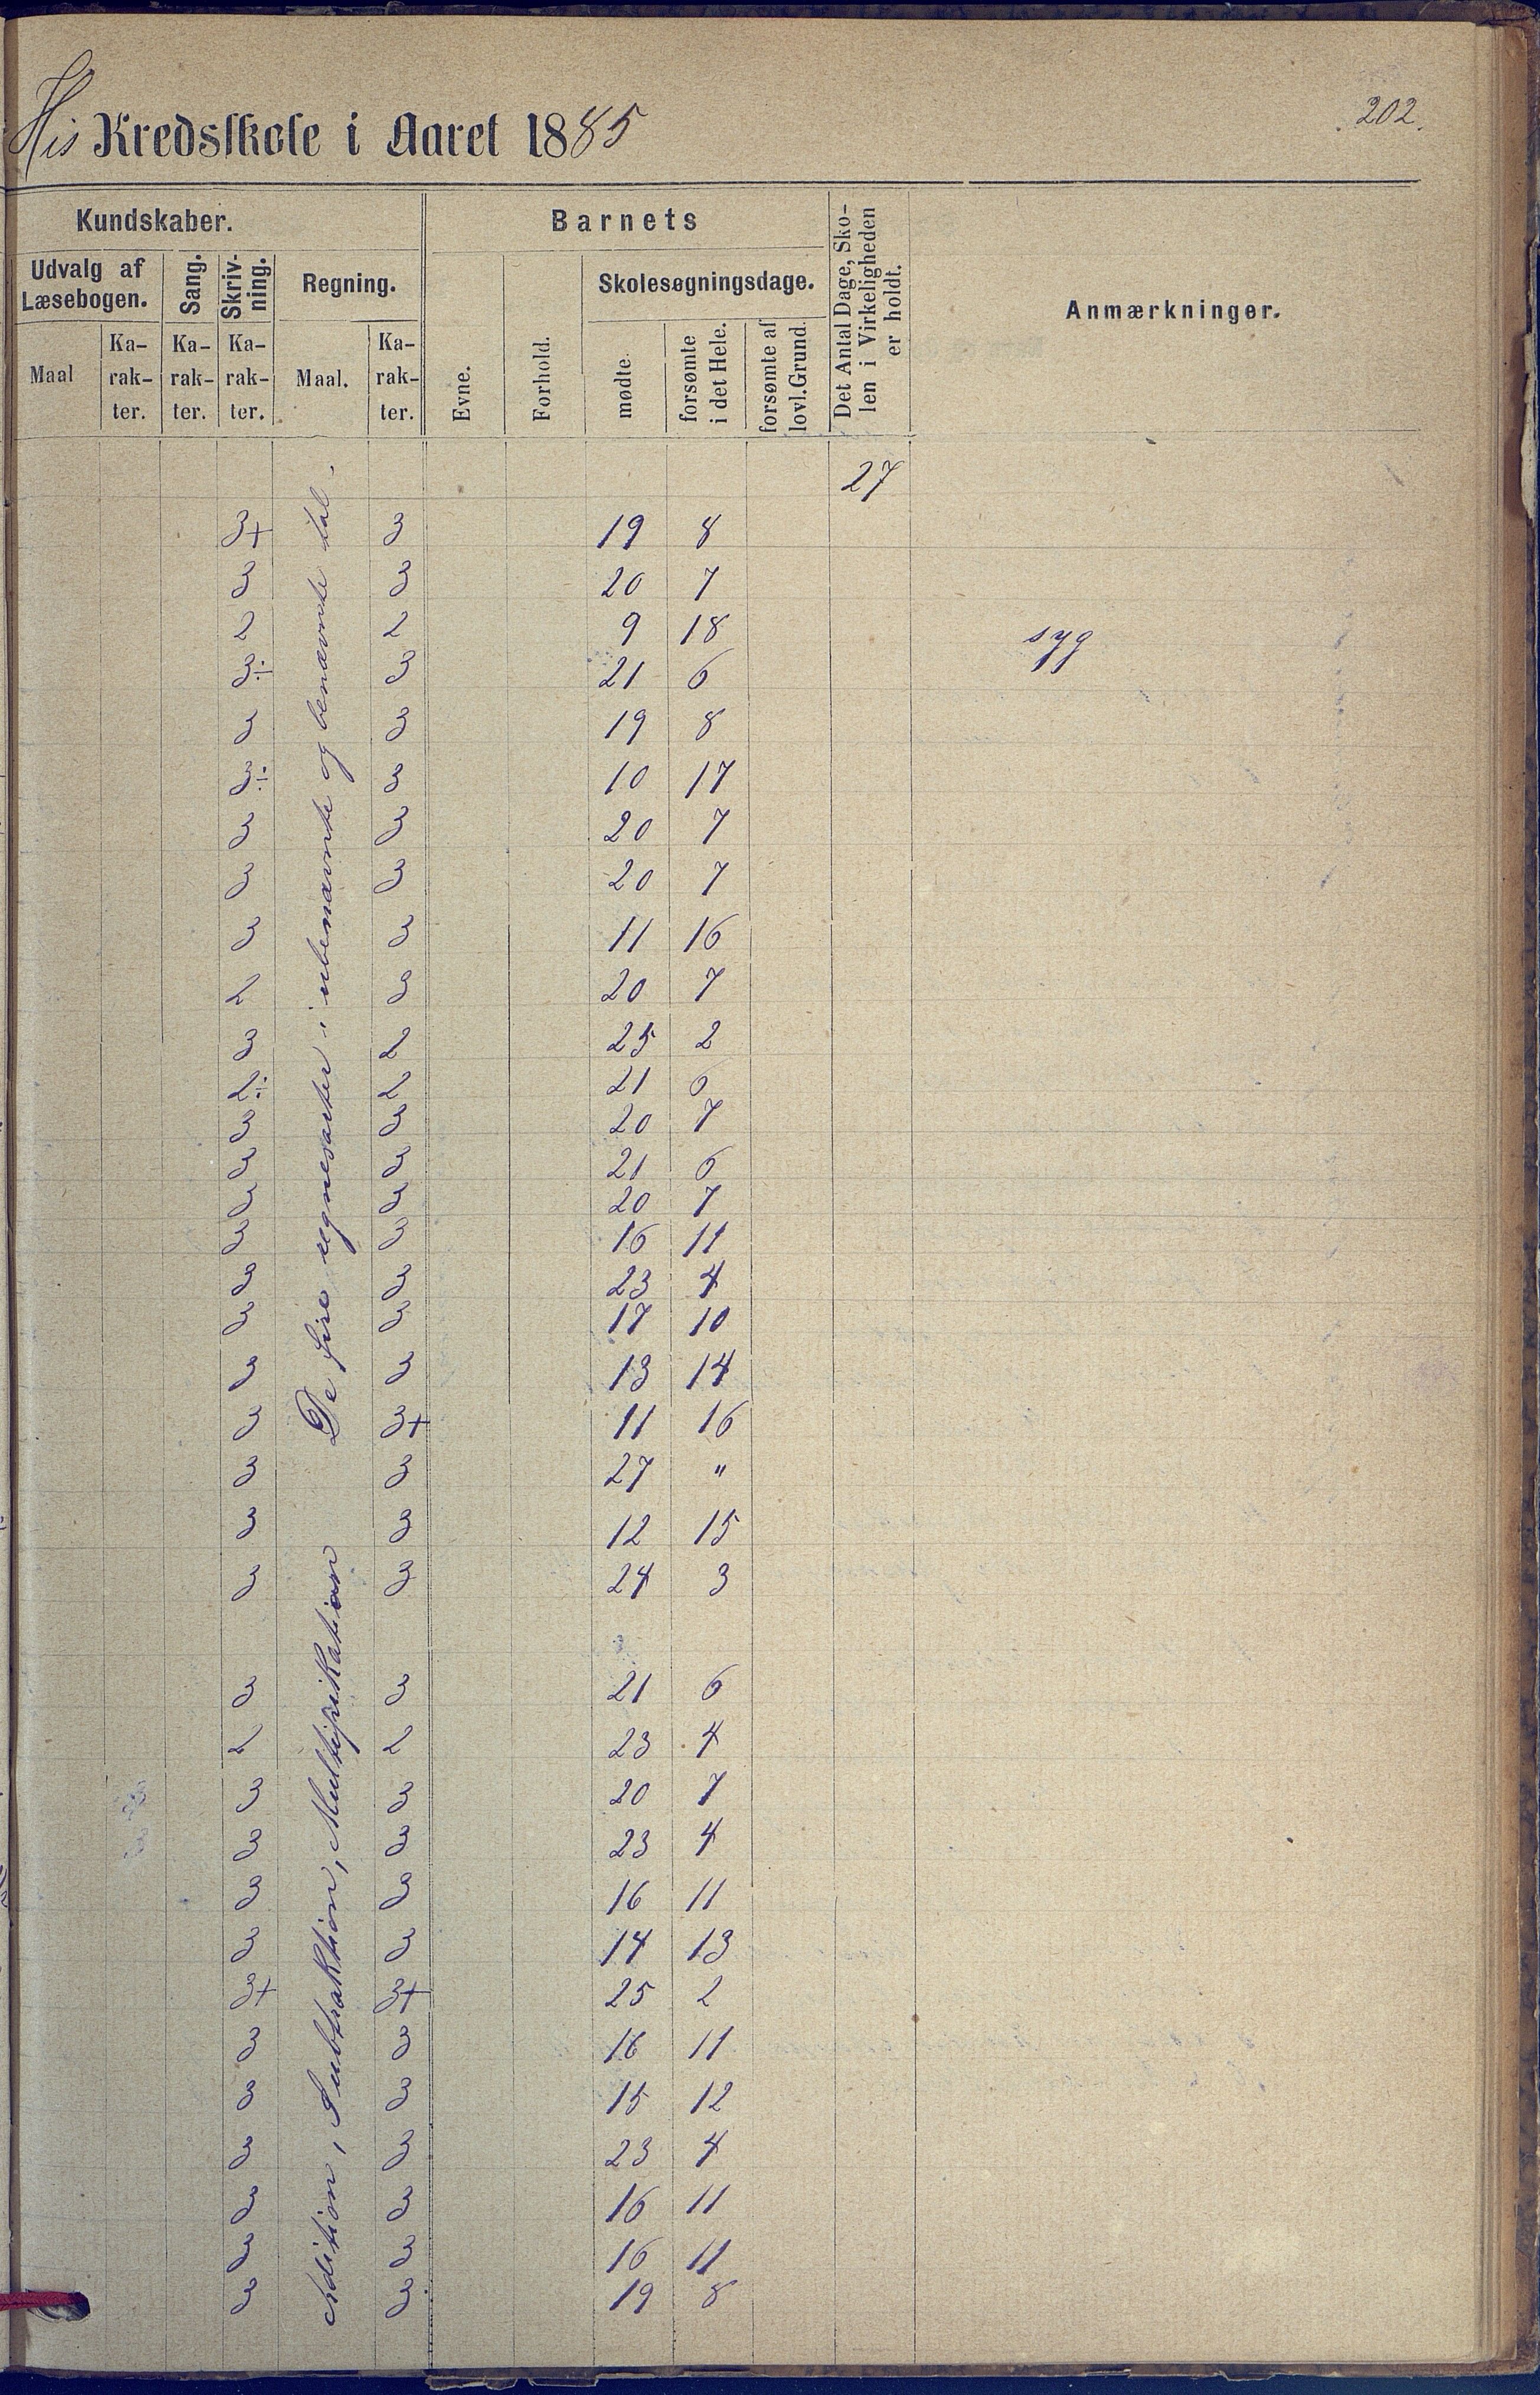 202.
His Kredsskole i Aaret 1885
Kundskaber. Barnets Det Antal Dage, Sko-len i Virkeligheden er holdt. Anmærkninger.
Udvalg af Læsebogen. Sang. Skriv-ning. Regning. Evne. Forhold. Skolesøgningsdage.
Maal Ka-rak-ter. Ka-rak-ter. Ka-rak-ter. Maal. Ka-rak-ter. mødte. forsømte i det Hele. forsømte af lovl. Grund.
27
De fire regnesarter i ubenævnte og benævnte tal.
3+ 3 19 8
3 3 20 7
2 2 9 18 syg
3÷ 3 21 6
3 3 19 8
3÷ 3 10 17
3 3 20 7
3 3 20 7
3 3 11 16
2 3 20 7
3 2 25 2
2÷ 2 21 6
3 3 20 7
3 3 21 6
3 3 20 7
3 3 16 11
3 3 23 4
3 3 17 10
3 3 13 14
3 3+ 11 16
3 3 27 "
3 3 12 15
3 3 24 3
Adition, Subtraktion, Multiplikation
3 3 21 6
2 2 23 4
3 3 20 7
3 3 23 4
3 3 16 11
3 3 14 13
3+ 3+ 25 2
3 3 16 11
3 3 15 12
3 3 23 4
3 3 16 11
3 3 16 11
3 3 19 8